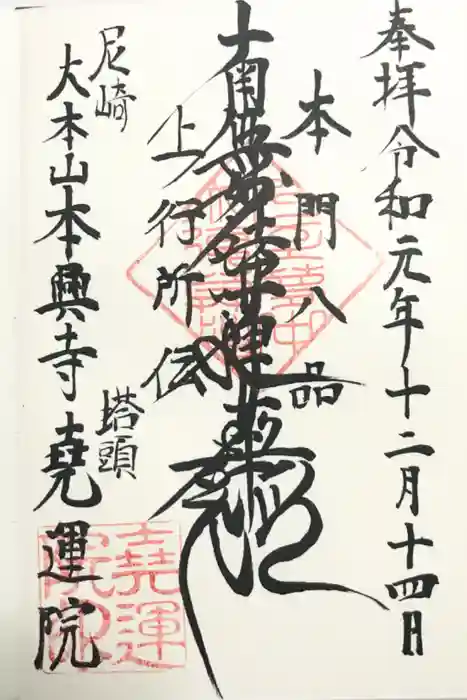 奉拝令和元年十二月十四日
本門八品
南無妙法蓮華経
上行所伝
尼崎
大本山本興寺 塔頭
堯運院
堯運
院